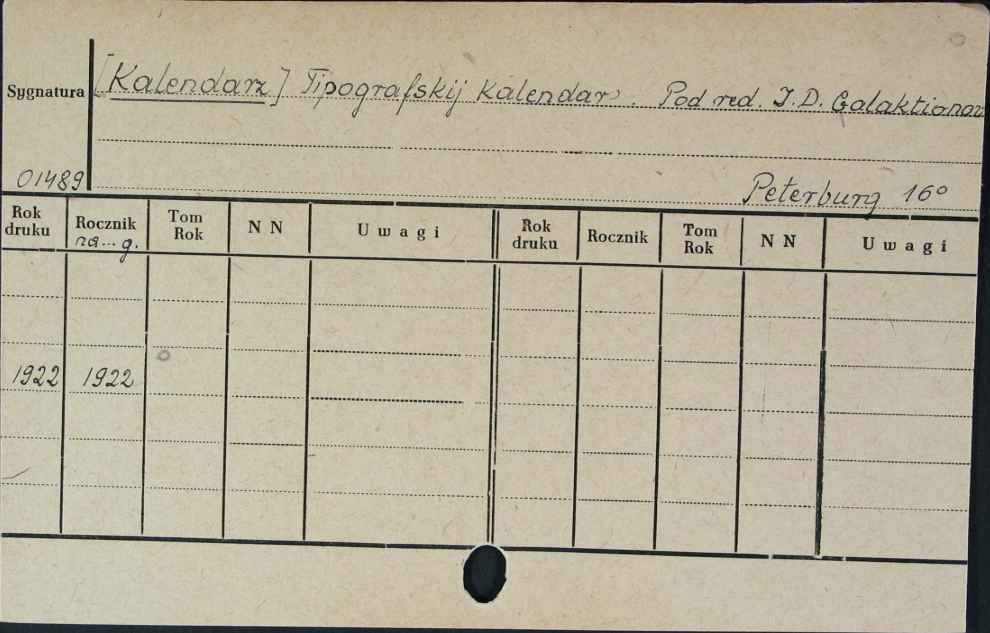 Sygnatura [Kalendarz] Tipografskij Kalendar'. Pod red. I.D. Galaktionov
01489 Peterburg 16°
Rok druku Rocznik na... g. Tom Rok N N Uwagi Rok druku Rocznik Tom Rok N N Uwagi
1922 1922